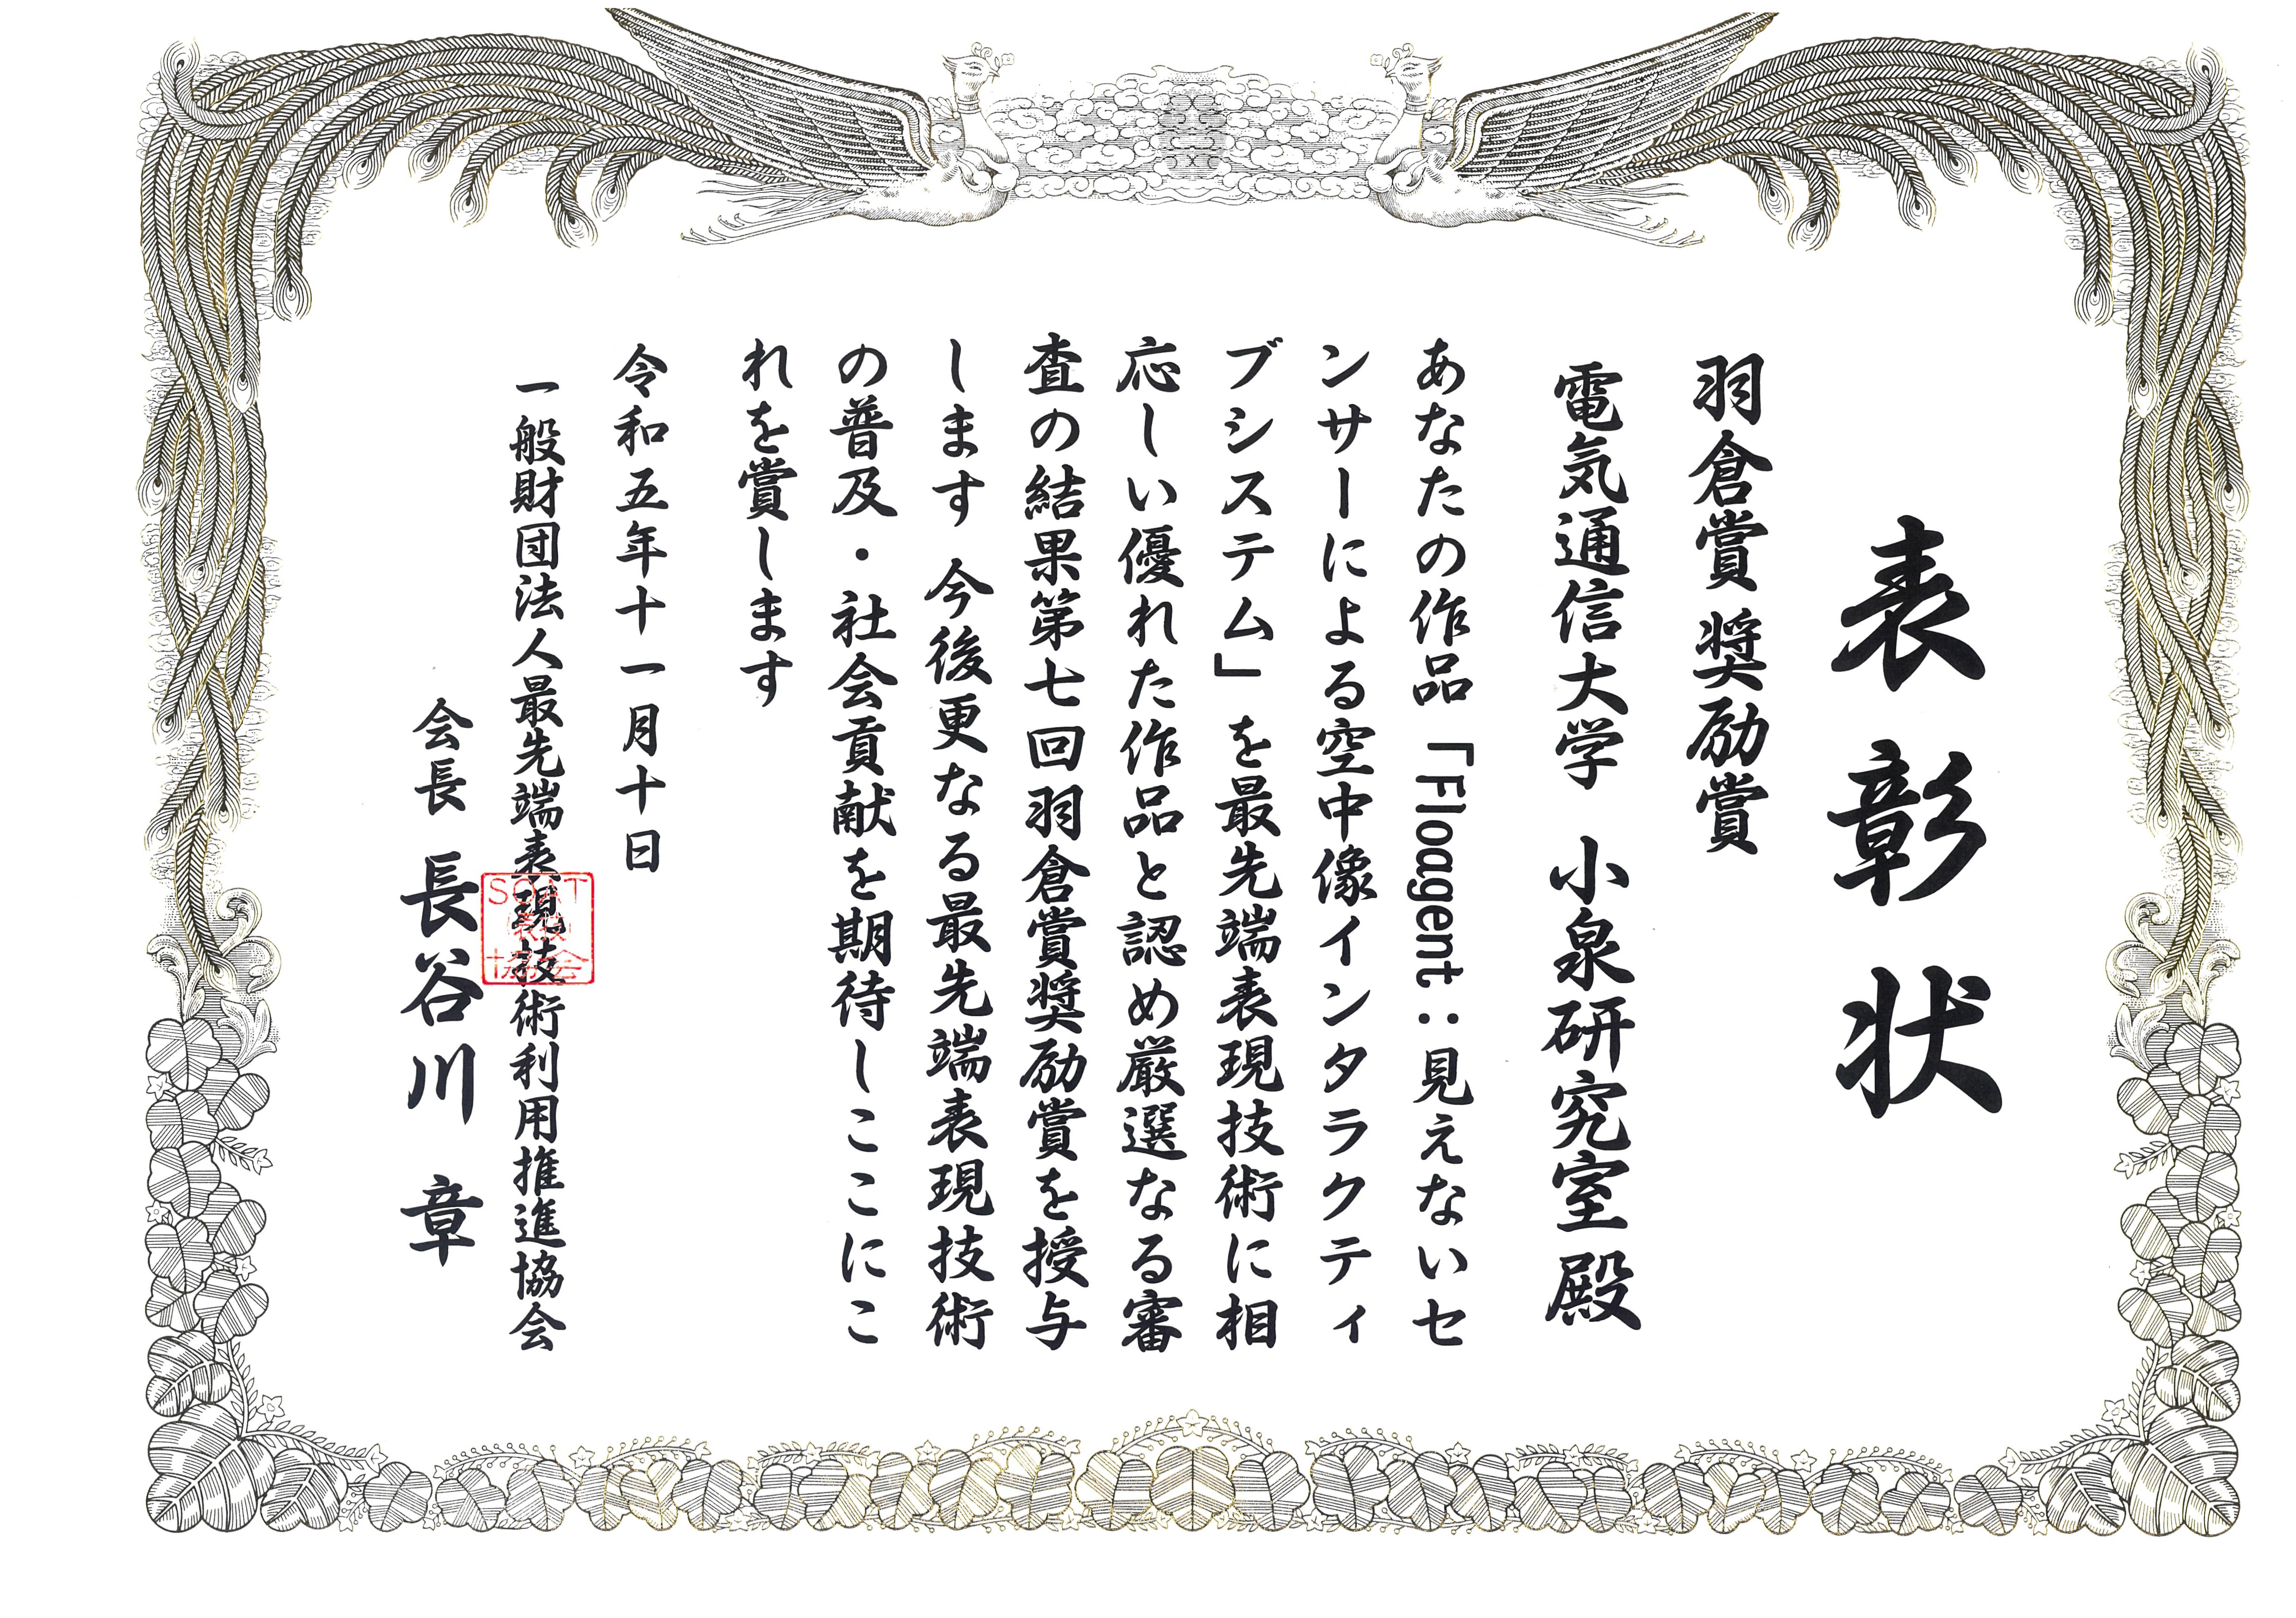 表彰状
羽倉賞 奨励賞
電気通信大学 小泉研究室 殿
あなたの作品「Floagent：見えないセ
ンサーによる空中像インタラクティ
ブシステム」を最先端表現技術に相
応しい優れた作品と認め厳選なる審
査の結果第七回羽倉賞奨励賞を授与
します 今後更なる最先端表現技術
の普及・社会貢献を期待しここにこ
れを賞します
令和五年十一月十日
一般財団法人最先端表現技術利用推進協会
会長 長谷川 章
SOAT
表技
協会